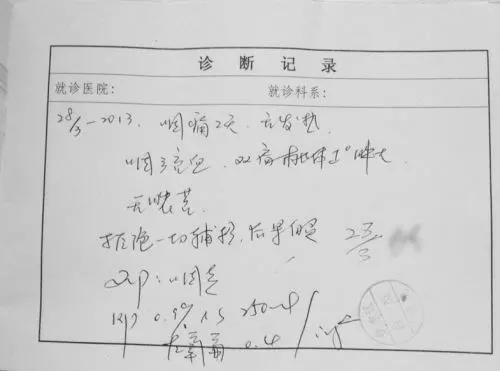 诊断记录
就诊医院: 就诊科系:
28/3-2013. 咽痛2天, 无发热.
咽充血, 双扁桃体I°肿大.
无脓苔.
拒绝一切辅检, 后果自负
Imp: 咽炎
Rp 0.9% NS 250ml
左氧 0.4 / ivgtt